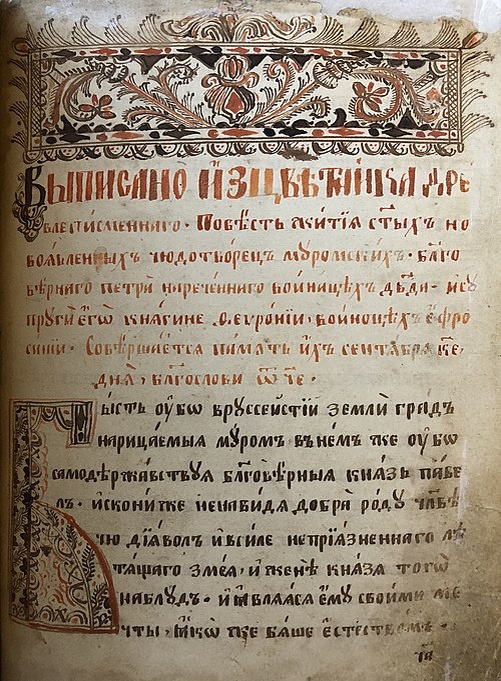 Выписано и҆з цвѣтника дре
влеписменнаго· Повѣсть жити́ѧ ст҃ыхъ но
воѧвленныхъ чюдотворецъ мꙋромскихъ· бл҃го
вѣрнаго петра̀ нареченнаго во и҆ноцѣхъ дв҃да· и҆сꙋ
прꙋги є҆гѡ̀ кнѧгине ѳеѵронїи, во и҆ноцѣхъ є҆фро
синїи· Совѣршаетсѧ памѧть и҆хъ сентѧбрѧ к҃е·
днѧ, бл҃гослови ѿч҃е·
Бысть ᲂу҆бѡ в рꙋссейстїй землѝ градъ
нарицаемыѧ мꙋромъ, в немъ же ᲂу҆бѡ
самодержавствꙋѧ бл҃говѣрныѧ кнѧзь паве
лъ· и҆скони же ненавидѧ добра̀ родꙋ чл҃вѣ
чю дїаволъ и҆ всилѐ непрїѧзненнаго лѣ
тащаго змеѧ, и҆ женѣ̀ кнѧзѧ тогѡ̀
на блꙋдъ· и҆ ꙗ҆влѧасѧ є҆мꙋ своими ме
чты, ꙗ҆кѡ же бѧше є҆стествомъ·